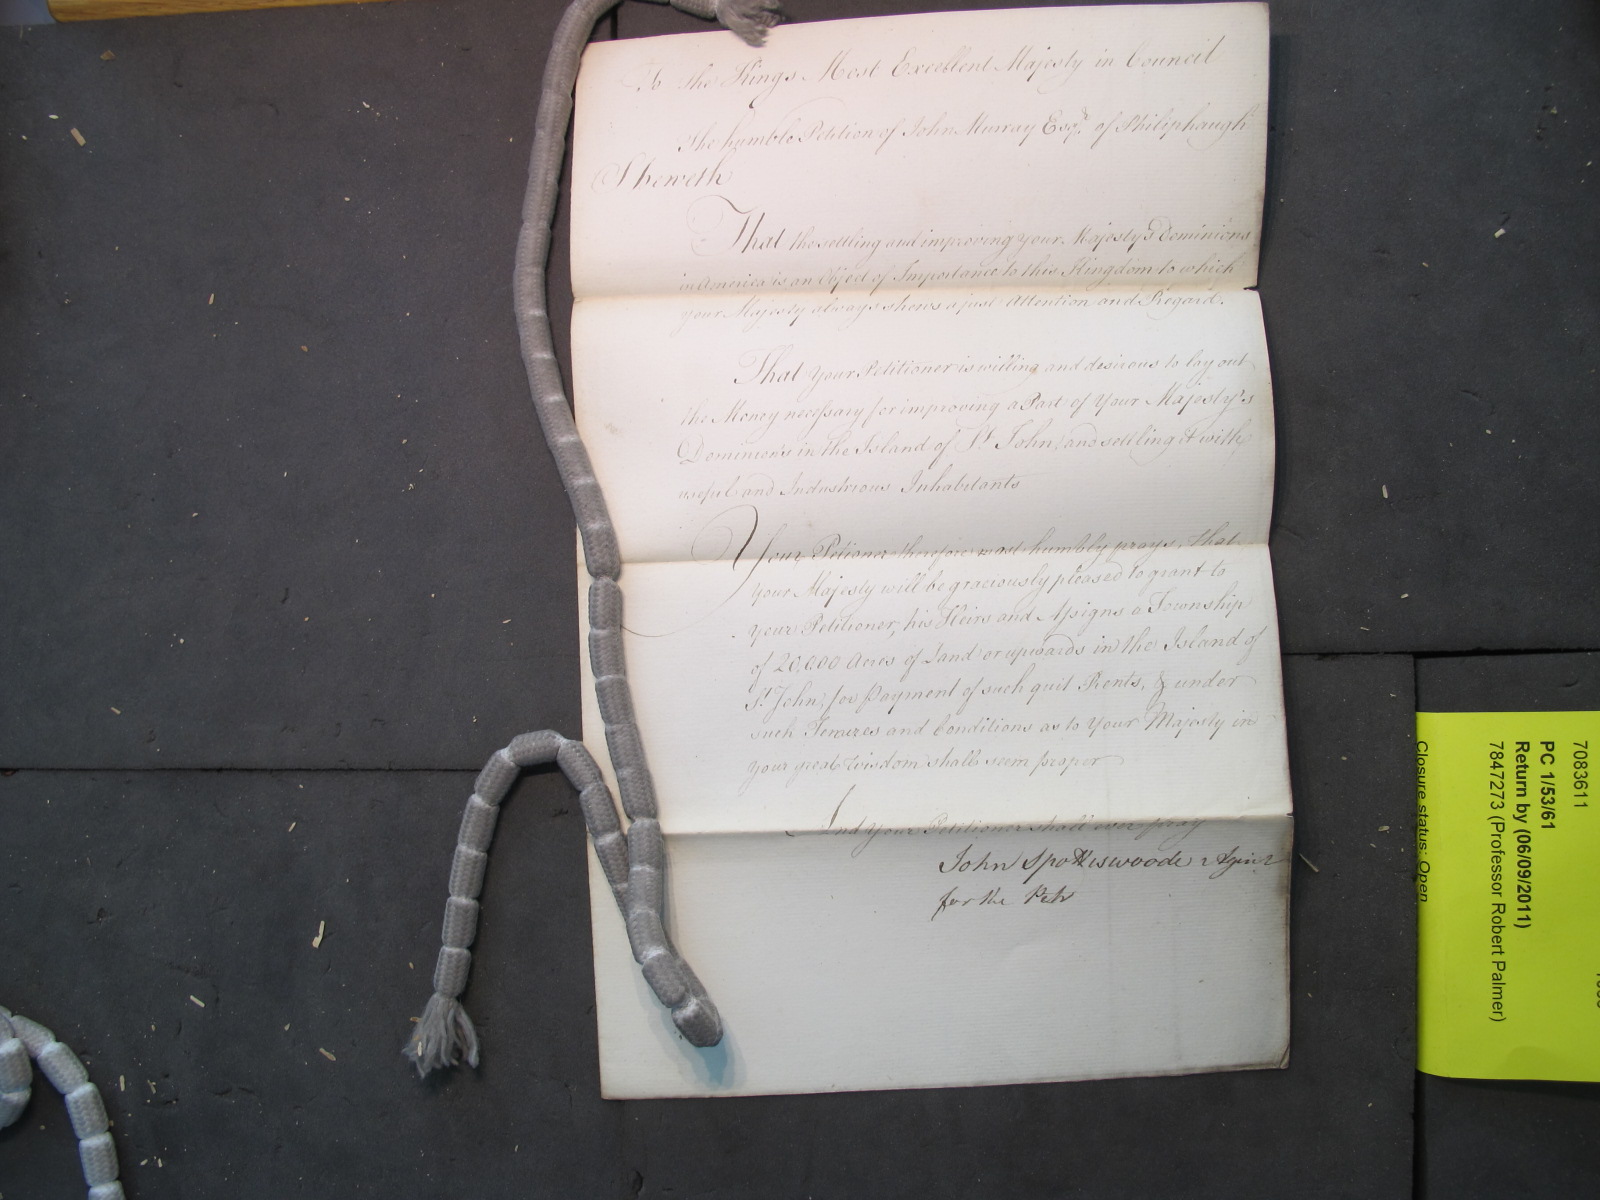 To the Kings Most Excellent Majesty in Council
The humble Petition of John Murray Esqr. of Philiphaugh
Sheweth
That the settling and improving your Majesty's Dominions
in America is an Object of Importance to this Kingdom to which
your Majesty always shews a just Attention and Regard.
That your Petitioner is willing and desirous to lay out
the Money necessary for improving a Part of Your Majesty's
Dominions in the Island of St. John, and settling it with
useful and Industrious Inhabitants
Your Petioner therefore most humbly prays, that
your Majesty will be graciously pleased to grant to
your Petitioner, his Heirs and Assigns a Township
of 20,000 Acres of Land or upwards in the Island of
St. John, for Payment of such quit Rents, & under
such Tenures and Conditions as to Your Majesty in
your great Wisdom shall seem proper
And your Petitioner shall ever pray
John Spottiswoode Agent
for the Petr
7083611
PC 1/53/61
Return by (06/09/2011)
7847273 (Professor Robert Palmer)
Closure status: Open